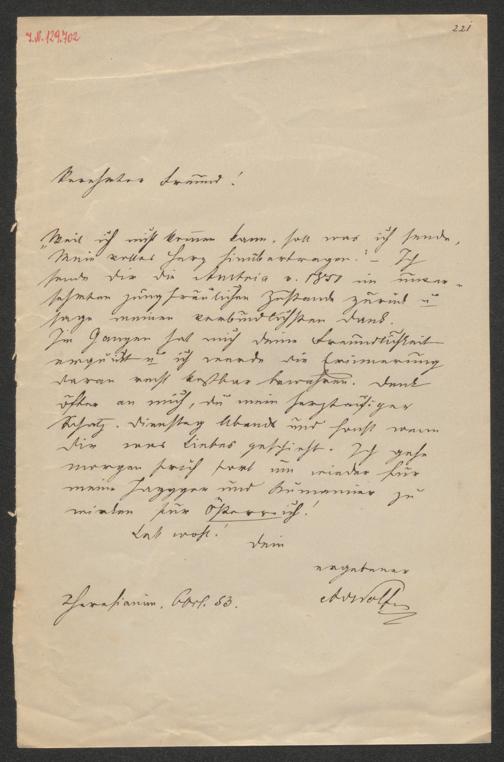 I.N. 129.702
221
Verehrter Freund!
"Weil ich nicht kommen kann, soll was ich sende,
Mein volles Herz hinübertragen." – Ich
sende Dir die Austria v. 1851 im unver-
sehrten jungfräulichen Zustande zurück u
sage meinen verbindlichsten Dank.
Im Ganzen hat mich deine Freundlichkeit
erquickt u ich werde die Erinnerung
daran recht kostbar bewahren. Denk
öfter an mich, du mein herztausiger
Schatz. Dienstag Abends und sonst wenn
Dir was Liebes geschieht. Ich gehe
morgen früh fort um wieder für
meine und zu
wirken für Österreich!
Leb wohl!
Dein
ergebener
AdWolf
Theresianum, 6 Oct. 53.